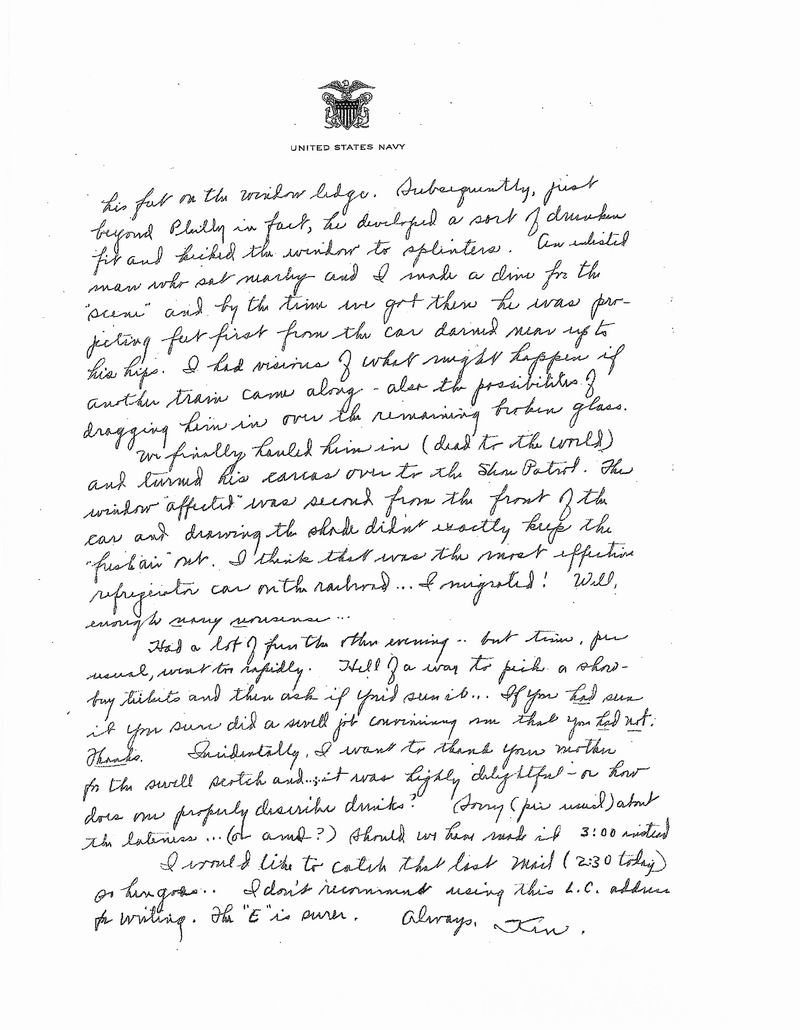 UNITED STATES NAVY
his feet on the window ledge. Subsequently, just
beyond Philly in fact, he developed a sort of drunken
fit and kicked the window to splinters. An enlisted
man who sat nearby and I made a dive for the
"scene" and by the time we got there he was pro-
jecting feet first from the car darned near up to
his hips. I had visions of what might happen if
another train came along - also the possibilites of
dragging him in over the remaining broken glass.
We finally hauled him in (dead to the world)
and turned his carcas over to the Shore Patrol. The
window "affected" was second from the front of the
car and drawing the shade didn't exactly keep the
"fresh air" out. I think that was the most effective
refrigerator car on the railroad... I migrated! Well,
enough navy nonsense...
Had a lot of fun the other evening -- but time, per
usual, went too rapidly. Hell of a way to pick a show-
buy tickets and then ask if you'd seen it... If you had seen
it you sure did a swell job convincing me that you had not.
Thanks. Incidentally, I want to thank your mother
for the swell scotch and...; it was highly "delightful" - or how
does one properly describe drinks? Sorry (per usual) about
the lateness ... (or a.m.?) should we have made it 3:00 instead
I would like to catch that last mail (2:30 today)
so here goes.. I don't recommend using this L.C. address
for writing. The "E" is surer. Always, Ken.